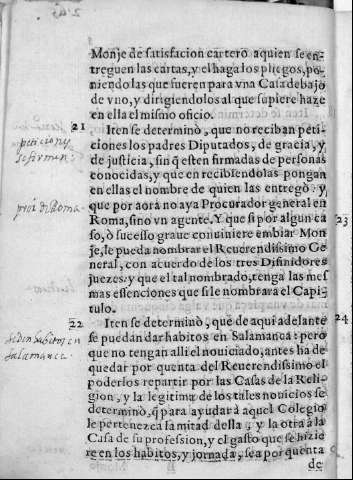 Monje de satisfacion cartero aquien se en-
treguen las cartas, y el haga los pliegos, po-
niendo las que fueren para vna Casa debajo
de vno, y dirigiendolos al que supiere haze
en ella el mismo oficio.
21 Iten se determinò, que no reciban peti-
ciones los padres Diputados, de gracia, y
de justicia, sin q̃ esten firmadas de personas
conocidas, y que en recibiendolas pongan
en ellas el nombre de quien las entregò: y
que por aora no aya Procurador general en
Roma, sino vn agente. Y que si por algun ca
so, ò sucesso graue conuiniere embiar Mon
je, le pueda nombrar el Reuerendissimo Ge
neral, con acuerdo de los tres Difinidores
juezes: y que el tal nombrado, tenga las mes
mas essenciones que si le nombrara el Capi-
tulo.
22 Iten se determinò, que de aqui adelante
se puedan dar habitos en Salamanca: pero
que no tengan alli el nouiciado, antes ha de
quedar por quenta del Reuerendissimo el
poderlos repartir por las Casas de la Reli-
gion, y la legitima de los tales nouicios se
determinò, q̃ para ayudar à aquel Colegio
le pertenezca la mitad della, y la otra à la
Casa de su profession, y el gasto que se hizie
re en los habitos, y jornada, sea por quenta
de
peticiones
se firmen
pror̃ d Roma
se den habitos en
salamanca
23
24